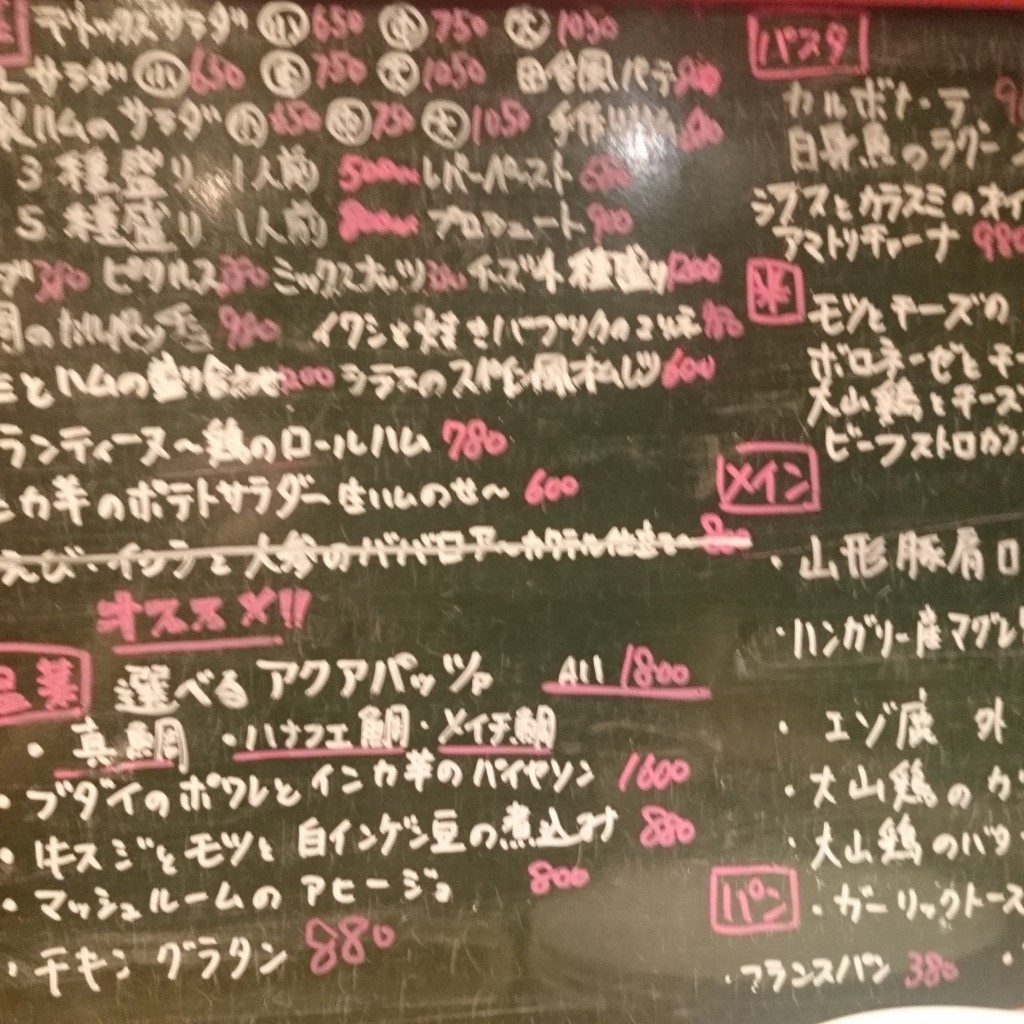 デトックスサラダ 小 650 中 750 大 1050
サラダ 小 650 中 750 大 1050 田舎風パテ
ハムのサラダ 小 650 中 750 大 1050
3種盛り 1人前 500 レバーペースト 680
5種盛り 1人前 800 プロシュート 900
380 ピクルス 380 ミックスナッツ チーズ4種盛り 1200
のカルパッチョ 980 イワシと焼きパプリカの
とハムの盛り合わせ 1200 シラスのスペイン風オムレツ 600
ランティーヌ〜鶏のロールハム 780
カ芋のポテトサラダー生ハムのせ〜 600
えび・イクラと人参のババロア〜カクテル仕立て〜 800
オススメ!!
温菜 選べるアクアパッツァ All 1800
・真鯛 ・ハナフエ鯛・メイチ鯛
・ブダイのポワレとインカ芋のパイヤソン 1600
・牛スジとモツと白インゲン豆の煮込み 880
・マッシュルームのアヒージョ 800
・チキングラタン 880
パスタ
カルボナーラ
白身魚のラグー
シラスとカラスミのオイ
アマトリチャーナ 980
米
モツとチーズの
ボロネーゼとチー
大山鶏とチーズ
ビーフストロガノ
メイン
・山形豚肩ロ
・ハンガリー産マグレ
・エゾ鹿 外
・大山鶏の
・大山鶏のバ
パン ・ガーリックトース
・フランスパン 380 ・